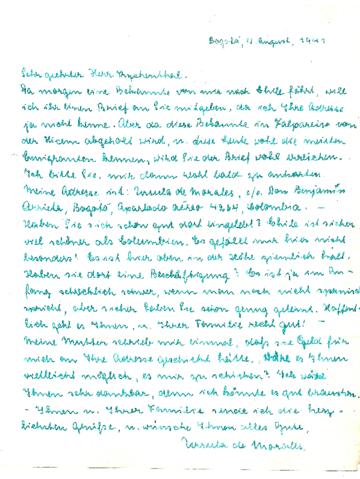 Bogotá, 11 August, 1941
Sehr geehrter Herr
Da morgen eine Bekannte von uns nach Chile fährt, will
ich ihr einen Brief an Sie mitgeben, da ich Ihre Adresse
ja nicht kenne. Aber da diese Bekannte in Valparaiso von
der Hicem abgeholt wird, u. diese Leute wohl die meisten
Emigranten kennen, wird Sie der Brief wohl erreichen.
Ich bitte Sie, mir dann recht bald zu antworten.
Meine Adresse ist: Ursula de Morales, c/o. Don Benjamin
Arrieta, Bogotá, Apartado Aéreo Colombia. -
Haben Sie sich schon gut dort eingelebt? Chile ist sicher
viel schöner als Columbien. Es gefällt mir hier nicht
besonders! Es ist hier oben in der Höhe ziemlich kalt.
Haben sie dort eine Beschäftigung? Es ist ja im An-
fang schrecklich schwer, wenn man noch nicht spanisch
spricht, aber sicher haben Sie schon genug gelernt. Hoffent-
lich geht es Ihnen, u. Ihrer Familie recht gut! -
Meine Mutter schrieb mir einmal, dass sie Geld für
mich an Ihre Adresse geschickt hätte. Wäre es Ihnen
vielleicht möglich, es mir zu schicken? Ich wäre
Ihnen sehr dankbar, denn ich könnte es gut brauchen.
- Ihnen u. Ihrer Familie sende ich die herz-
lichsten Grüsse, u. wünsche Ihnen alles Gute,
Ursula de Morales.